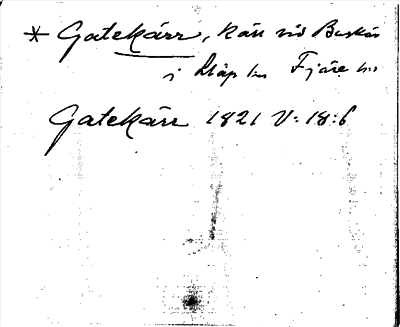 * Gatekärr, kärr vid Buskär
i Släp sn Fjäre hd
Gatekärr 1821 V: 18:6